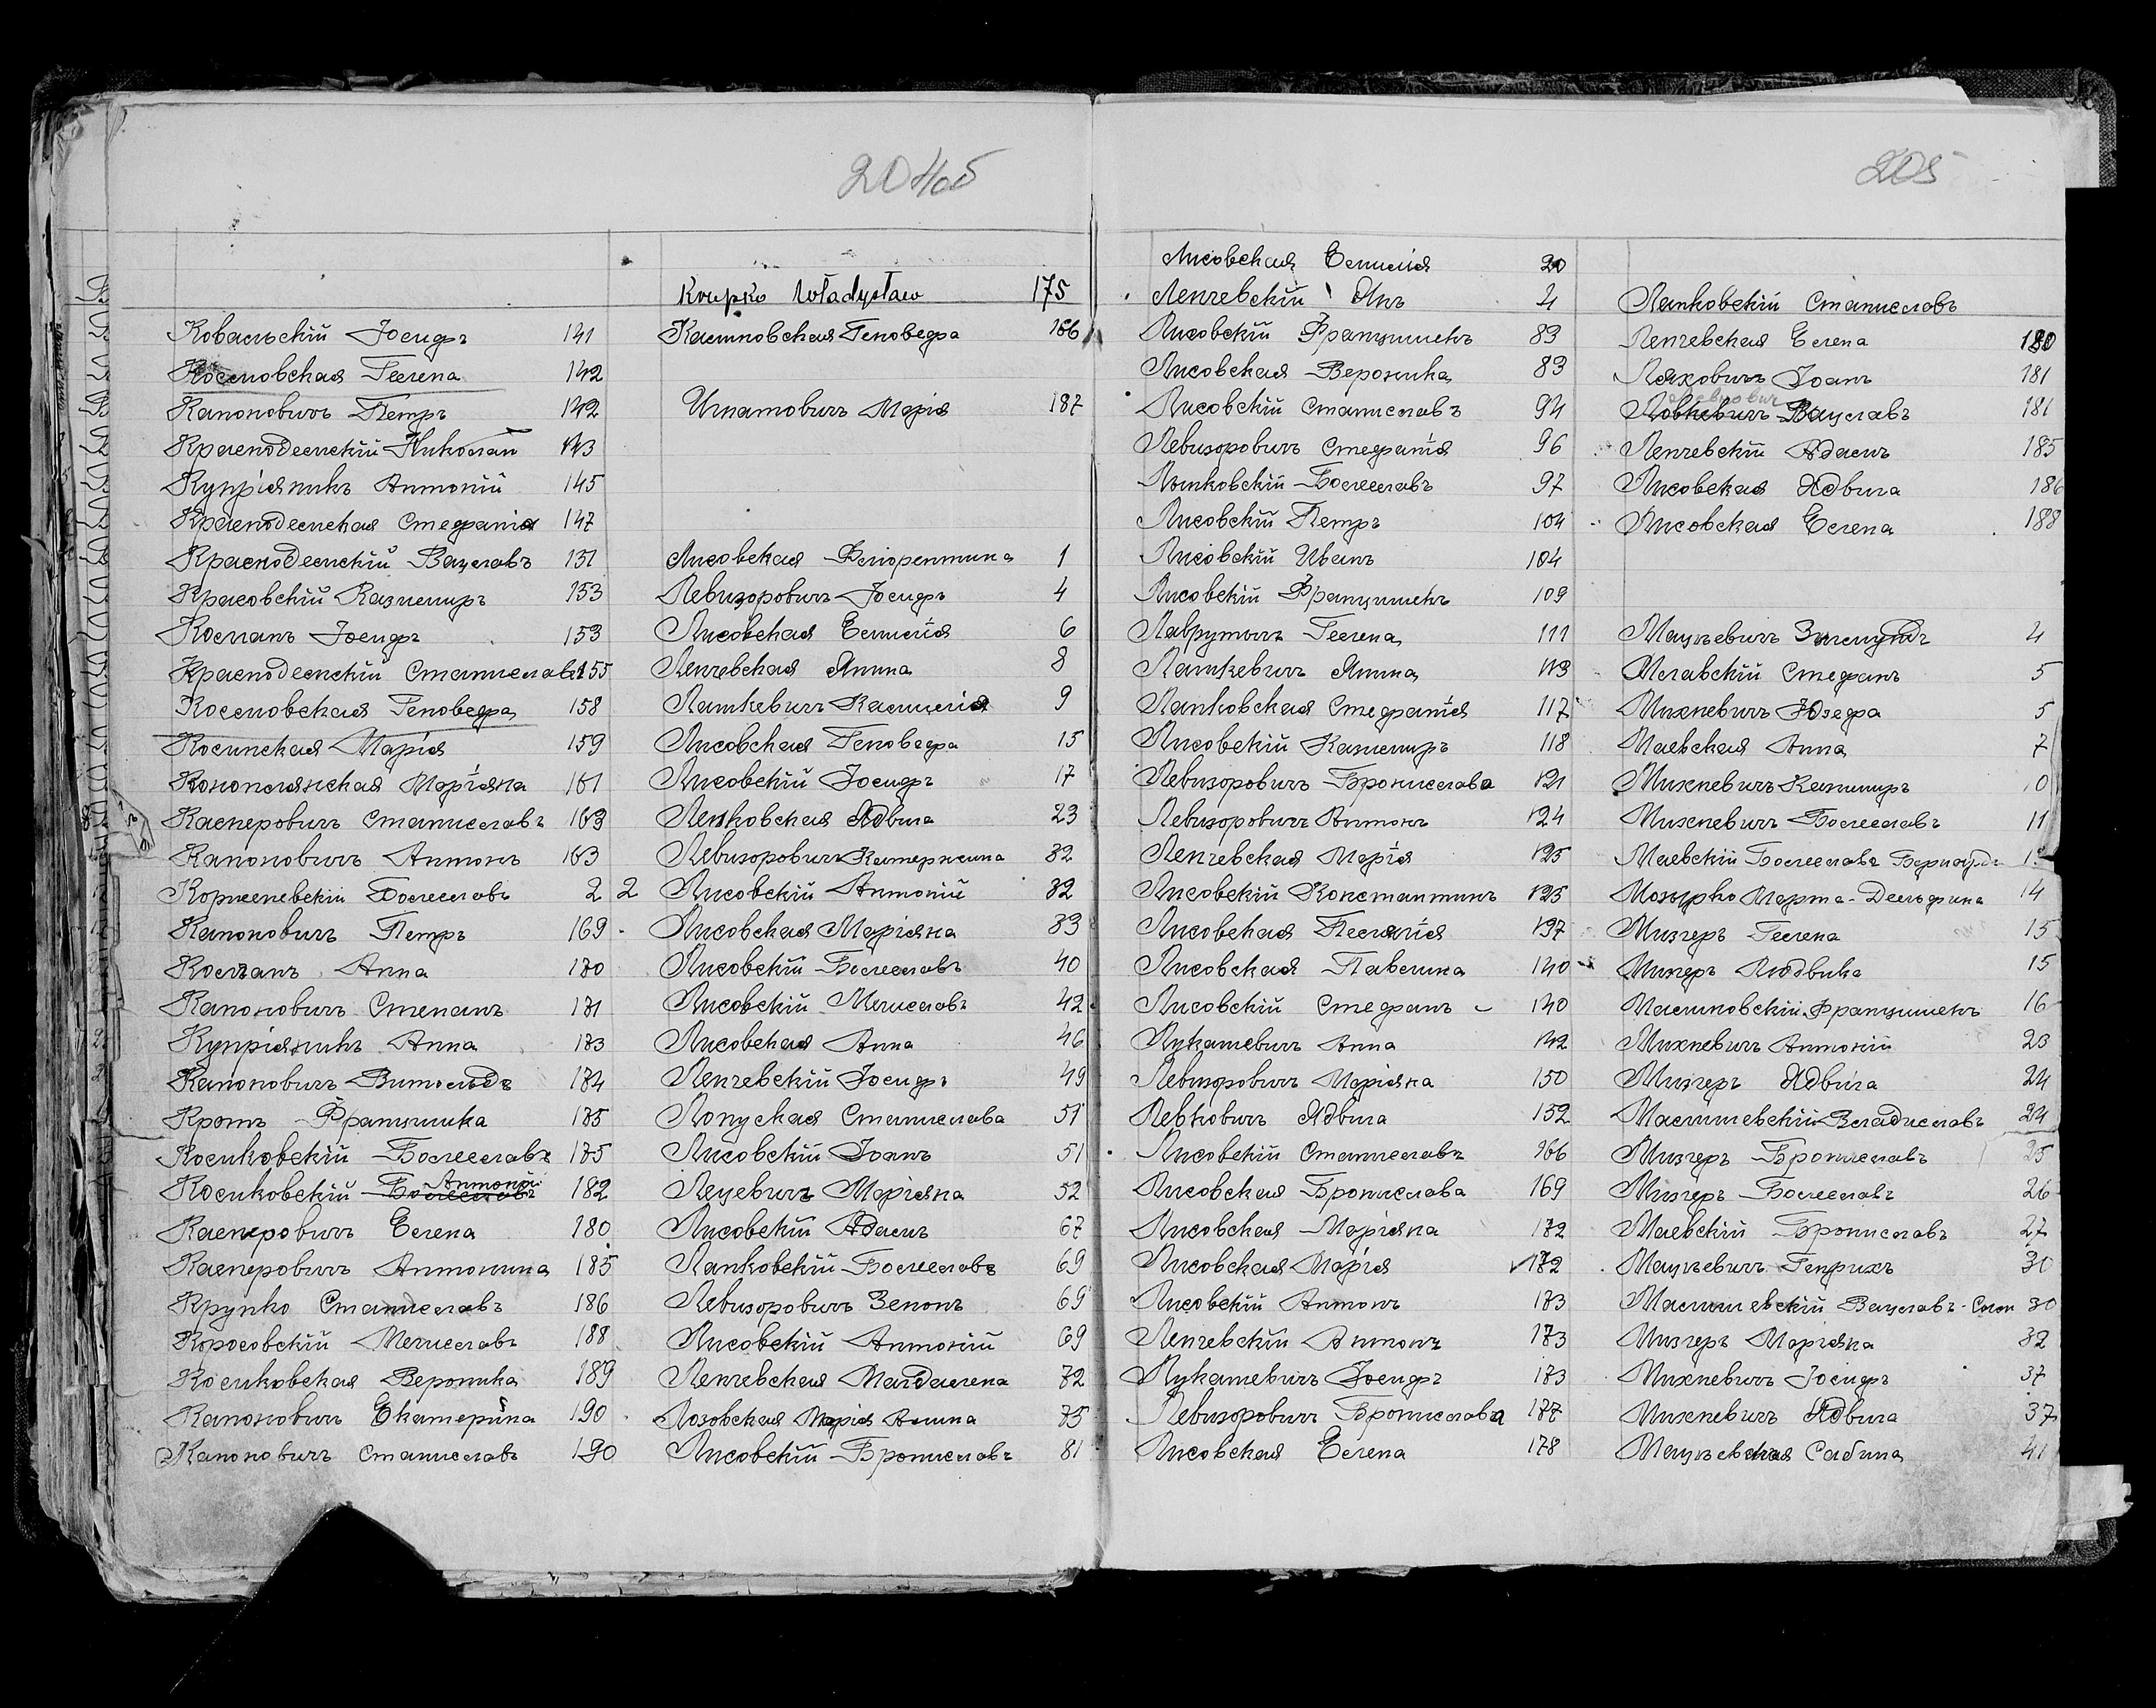 204об
Ковальскій Іосифъ 141
Космовская Гелена 142
Капоновичъ Петръ 142
Красподемскій Николай 143
Купріяникъ Антоній 145
Красподемская Стефанія 147
Красподемскій Вацлавъ 151
Красовскій Казимиръ 153
Косманъ Іосифъ 153
Красподемскій Станиславъ 155
Космовская Геноведра 158
Косинская Марія 159
Кононлянская Маріяна 161
Касперовичъ Станиславъ 163
Капоновичъ Антонъ 163
Корженевскій Болеславъ 2 2
Капоновичъ Петръ 169
Анна 170
Капоновичъ Степанъ 171
Купріяникъ Анна 173
Капоновичъ Витольдъ 174
Кротъ Францишка 175
Косиковскій Болеславъ 175
Косиковскій Антоній 182
Касперовичъ Елена 180
Касперовичъ Антонина 185
Крупко Станиславъ 186
Коросовскій Мечиславъ 188
Косиковская Вероника 189
Капоновичъ Екатерина 190
Капоновичъ Станиславъ 190
Krupko Władysław 175
Геноведра 186
Игнатовичъ Марія 187
Лисовская Флорентина 1
Левизоровичъ Іосифъ 4
Лисовская Емилія 6
Ленчевская Янина 8
Лашкевичъ Камилія 9
Лисовская Геноведра 15
Лисовскій Іосифъ 17
Ядвига 23
Левизоровичъ Катержина 32
Лисовскій Антоній 32
Лисовская Маріяна 33
Лисовскій Болеславъ 40
Лисовскій Мечиславъ 42
Лисовская Анна 46
Ленчевскій Іосифъ 49
Лопуская Станислава 51
Лисовскій Іоанъ 51
Лецевичъ Маріяна 52
Лисовскій Адамъ 67
Лапковскій Болеславъ 69
Левизоровичъ Зенонъ 69
Лисовскій Антоній 69
Ленчевская Магдалена 72
Лозовская Марія Анина 75
Лисовскій Брониславъ 81
205
Лисовская Емилія 20
Ленчевскій Янъ 21
Лисовскій Францишекъ 83
Лисовская Вероника 83
Лисовскій Станиславъ 94
Левизоровичъ Стефанія 96
Болеславъ 97
Лисовскій Петръ 104
Лисовскій Иванъ 104
Лисовскій Францишекъ 109
Гелена 111
Лашкевичъ Янина 113
Лапковская Стефанія 117
Лисовскій Казимиръ 118
Левизоровичъ Бронислава 121
Левизоровичъ Антонъ 124
Ленчевская Марія 125
Лисовскій Константинъ 125
Лисовская Пелагія 137
Лисовская Павлина 140
Лисовскій Стефанъ 140
Лукашевичъ Анна 142
Левизоровичъ Маріяна 150
Левковичъ Ядвига 152
Лисовскій Станиславъ 166
Лисовская Бронислава 169
Лисовская Маріяна 172
Лисовская Марія 172
Лисовскій Антонъ 173
Ленчевскій Антонъ 173
Лукашевичъ Іосифъ 173
Левизоровичъ Бронислава 177
Лисовская Елена 178
Лапковскій Станиславъ
Ленчевская Елена 180
Ляховичъ Іоанъ 181
Вацлавъ 181
Ленчевскій Адамъ 185
Лисовская Ядвига 186
Лисовская Елена 188
Мацкевичъ Зигмундъ 4
Стефанъ 5
Михневичъ Юзефа 5
Маевская Анна 7
Михневичъ Казимиръ 10
Михневичъ Болеславъ 11
Маевскій Болеславъ Бернардъ
Мозырко Марта-Дельфина 14
Мизгеръ Гелена 15
Мизгеръ Людвика 15
Францишекъ 16
Михневичъ Антоній 23
Мизгеръ Ядвига 24
Владиславъ 24
Мизгеръ Брониславъ 25
Мизгеръ Болеславъ 26
Маевскій Брониславъ 27
Мацкевичъ Генрихъ 30
Вацлавъ 30
Мизгеръ Маріяна 32
Михневичъ Іосифъ 37
Михневичъ Ядвига 37
Сабина 41